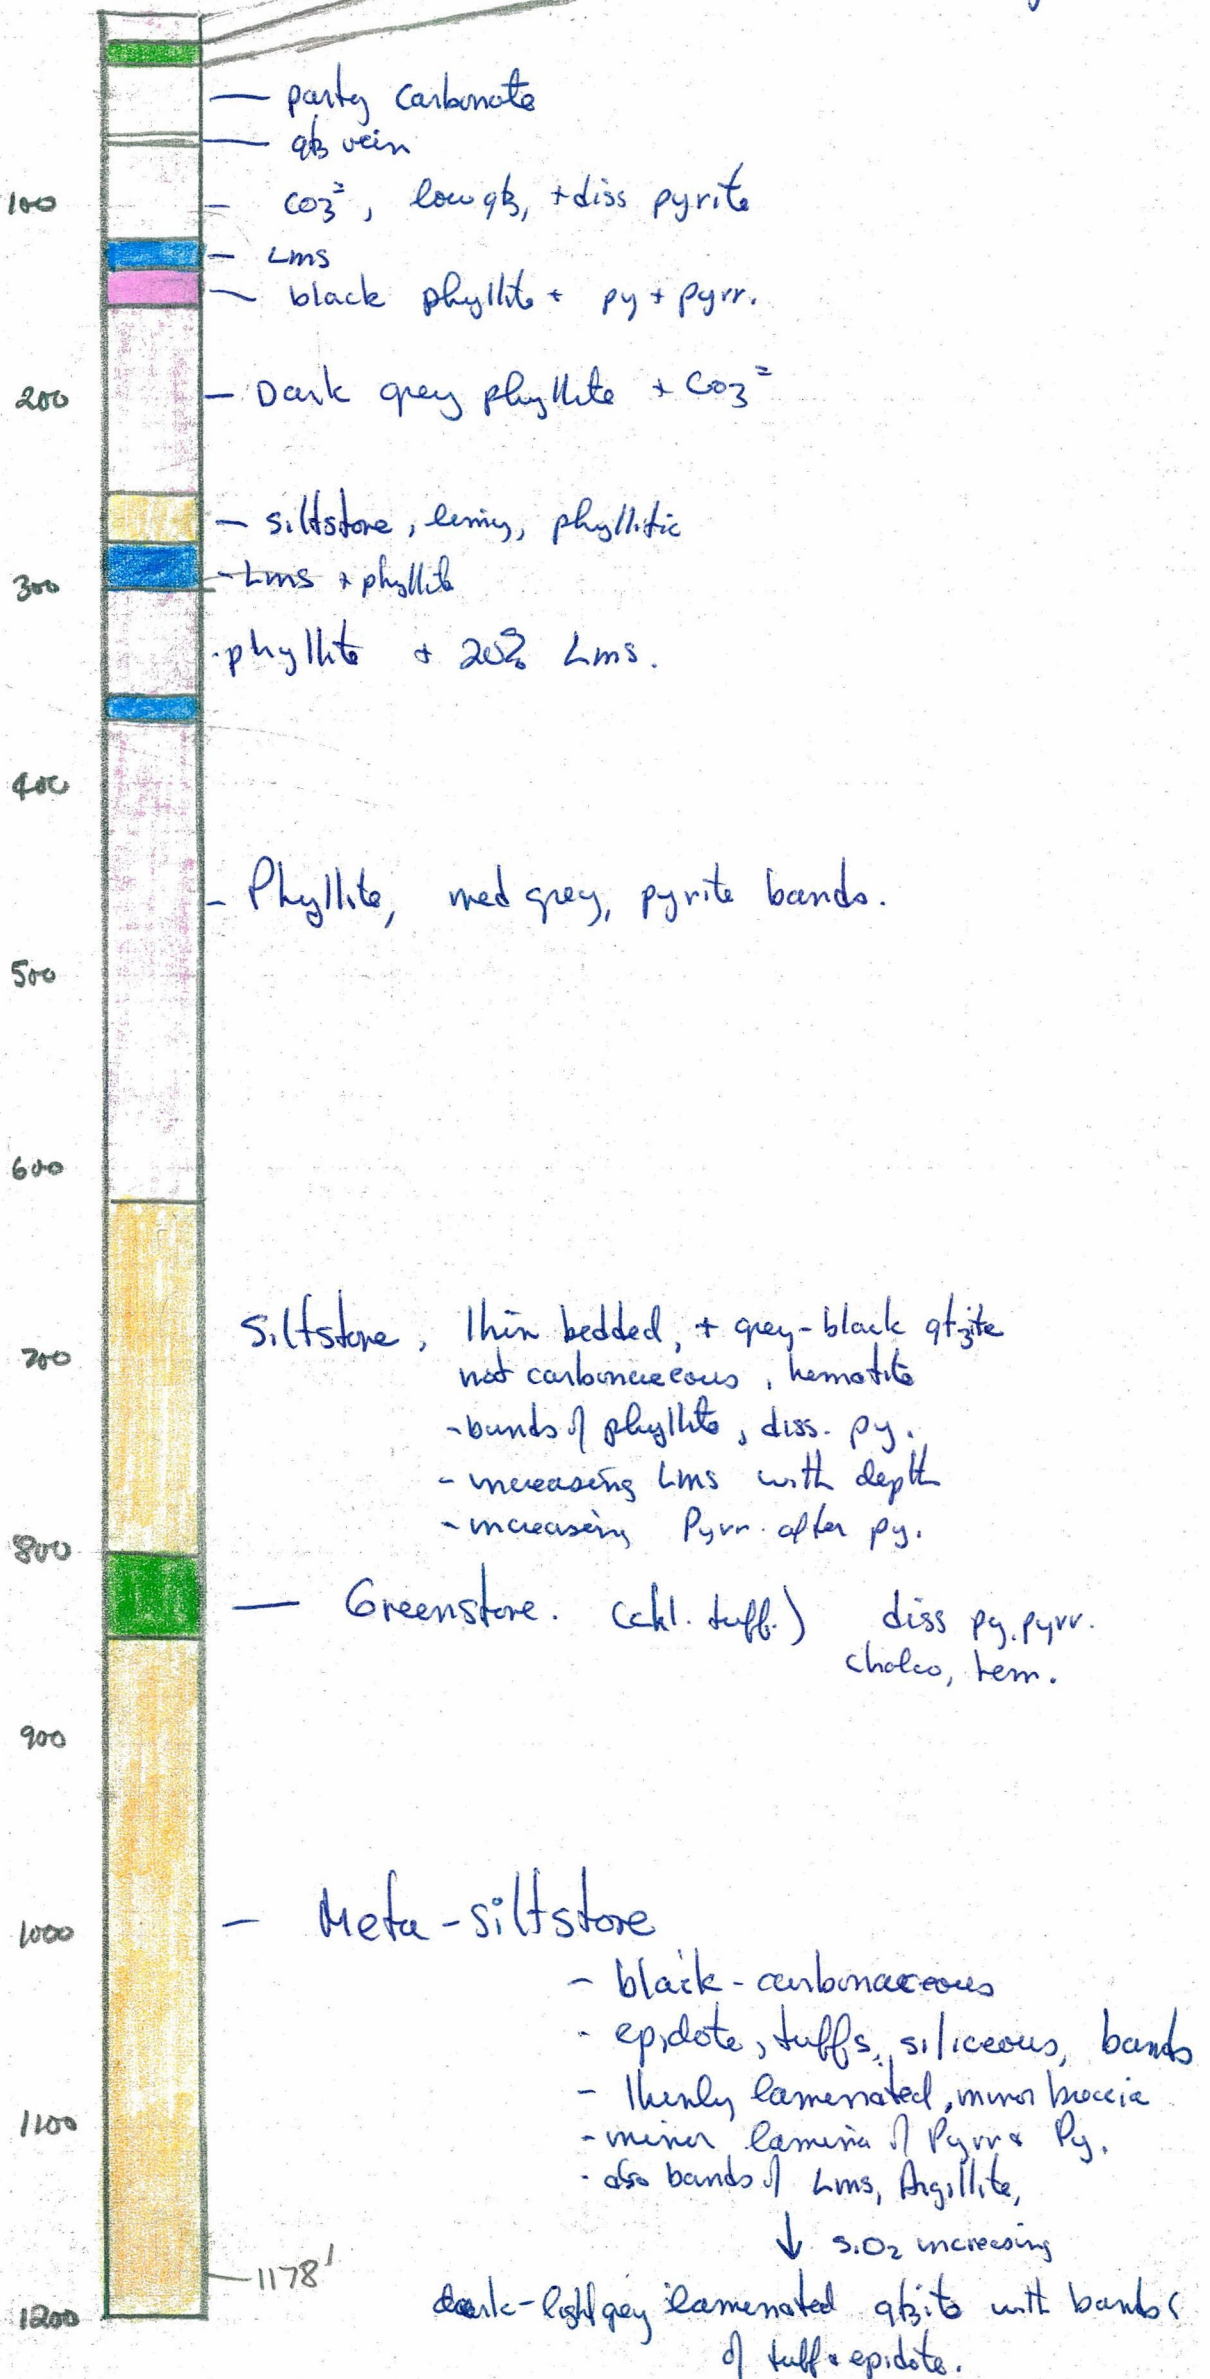 — party Carbonate
— qtz vein
100 - CO3=, low qtz, + diss pyrite
- Lms
- black phyllite + py + pyrr.
200 - Dark grey phyllite + CO3=
- siltstone, limy, phyllitic
300 - Lms + phyllite
- phyllite + 20% Lms.
400
- Phyllite, med grey, pyrite bands.
500
600
Siltstone, thin bedded, + grey-black qtzite
700 not carbonaceous, hematite
- bands of phyllite, diss. py.
- increasing Lms with depth
- increasing Pyrr. after py.
800
— Greenstone. (chl. tuff.) diss py. pyrr.
chalco, hem.
900
1000 - Meta-siltstone
- black-carbonaceous
- epidote, tuffs, siliceous, bands
- thinly laminated, minor breccia
1100 - minor lamina of Pyrr & Py.
- also bands of Lms, Argillite,
↓ SiO2 increasing
1178'
1200 dark-light grey laminated qtzite with bands
of tuff & epidote.